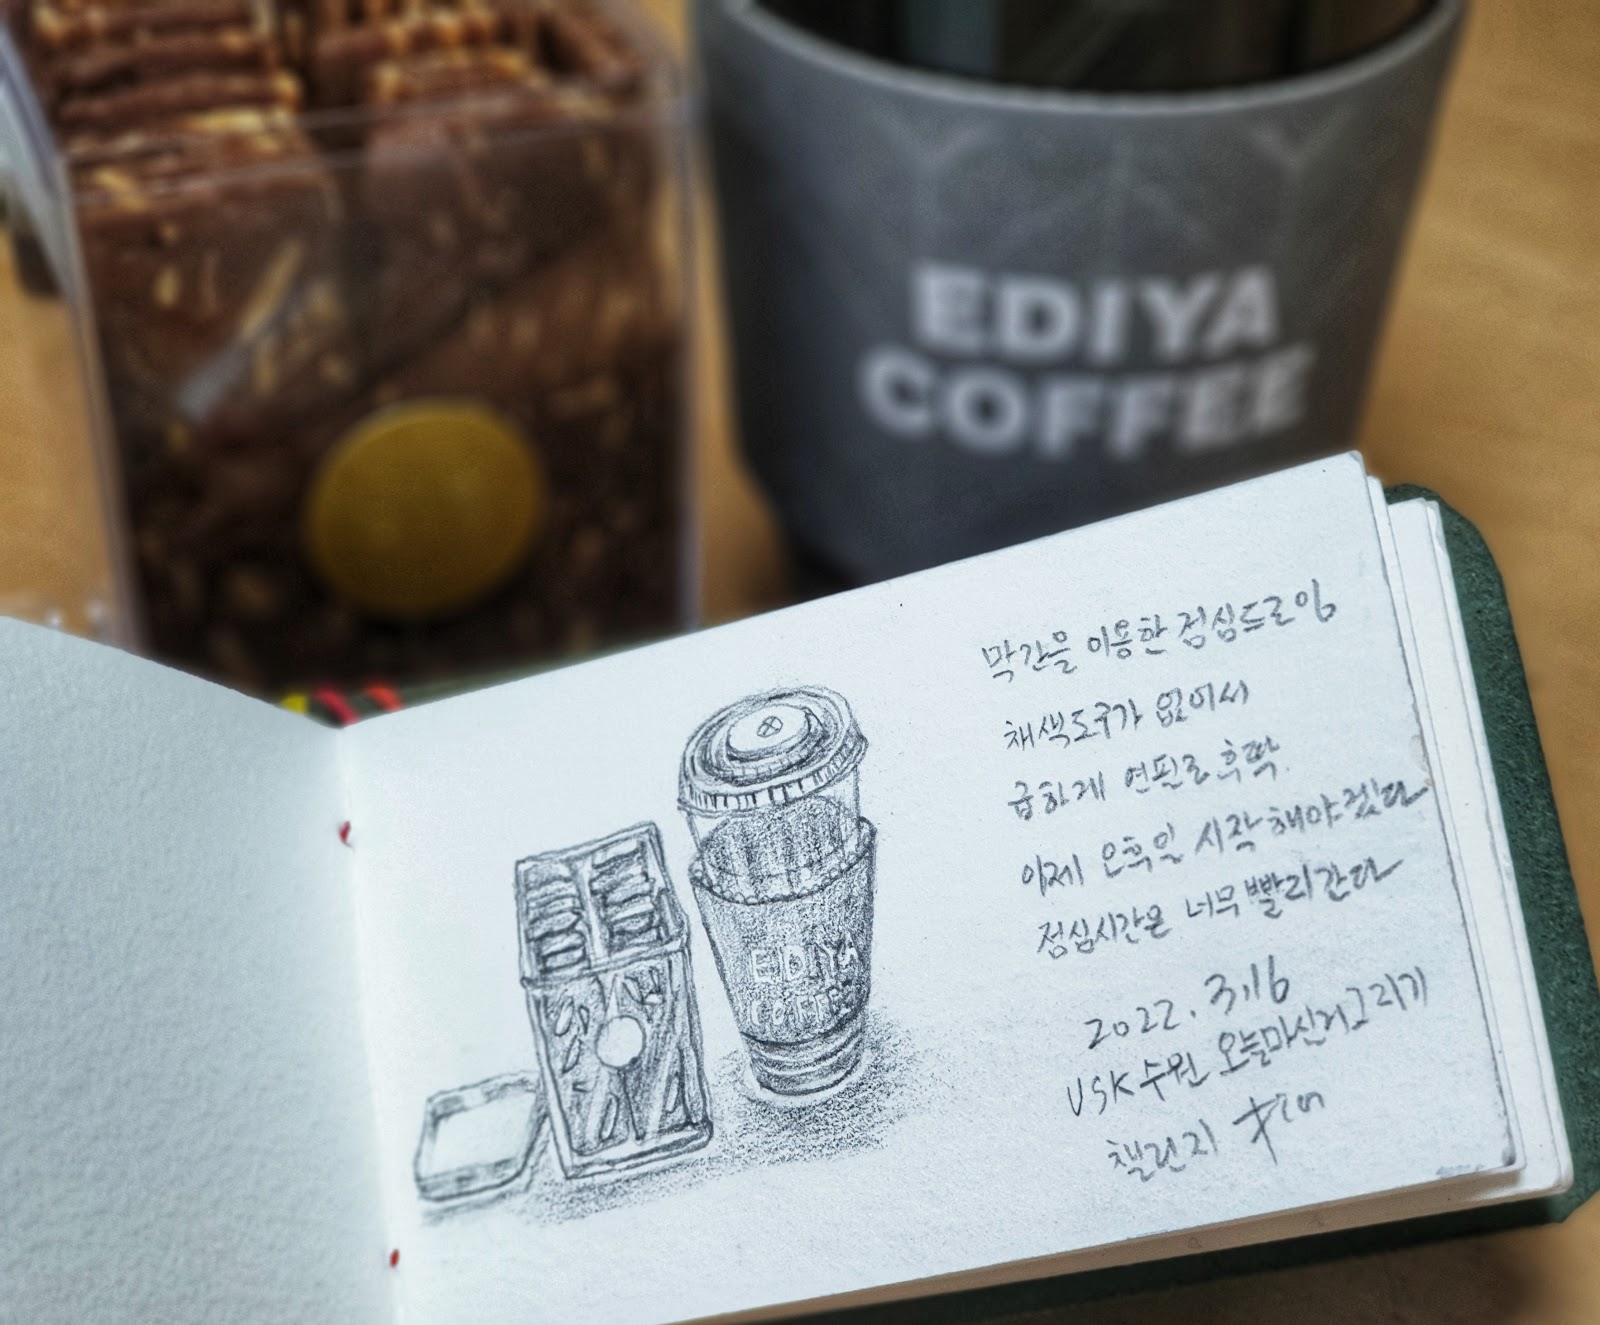 EDIYA
COFFEE
막간을 이용한 점심드로잉
채색도구가 없어서
급하게 연필로 후딱.
이제 오후일 시작해야겠다
점심시간은 너무 빨리간다
2022. 3.16
USK수원 오늘마신거그리기
챌린지
EDIYA
COFFEE